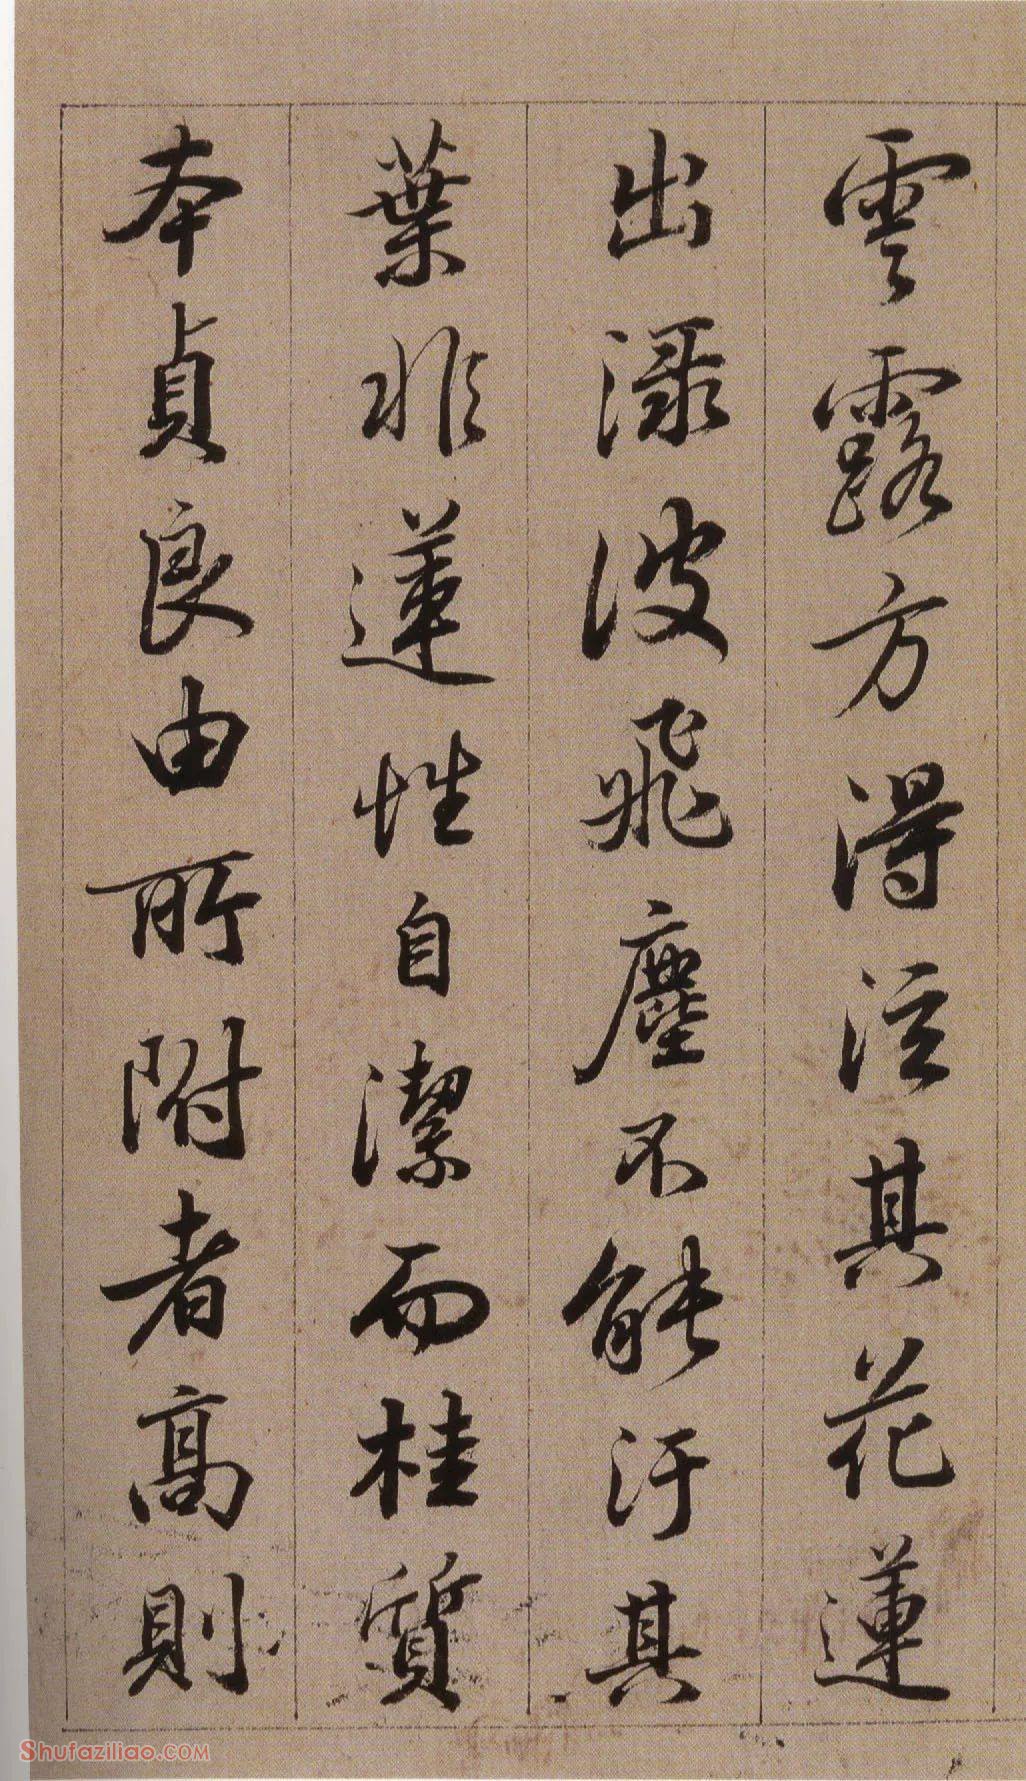 雲露方得泫其花蓮
出渌波飛塵不能汙其
葉非蓮性自潔而桂質
本貞良由所附者高則
Shufaziliao.COM